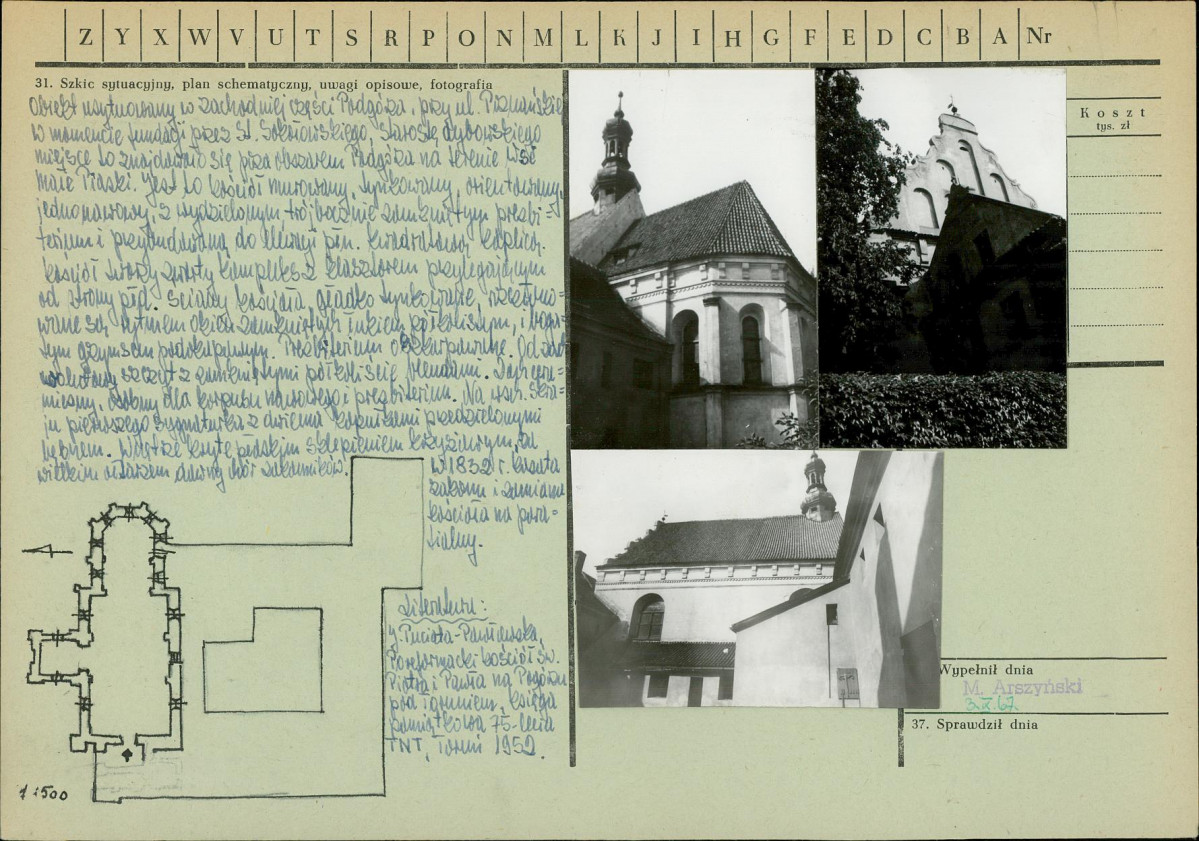 Z Y X W V U T S R P O N M L K J I H G F E D C B A Nr
31. Szkic sytuacyjny, plan schematyczny, uwagi opisowe, fotografia
Obiekt usytuowany w zachodniej części Podgórza, przy ul. Poznańskiej
w momencie fundacji przez St. Sokołowskiego, starostę dybowskiego
miejsce to znajdowało się poza obszarem Podgórza na terenie wsi
małe Piaski. Jest to kościół murowany, tynkowany, orientowany,
jednonawowy, z wydzielonym trójbocznie zamkniętym prezbi-
terium i przybudowaną do nawy płn. kwadratową kaplicą.
Kościół tworzy zwarty kompleks z klasztorem przylegającym
od strony płd. Ściany kościoła gładko tynkowane, rozczłonko-
wane są rytmem okien zamkniętych łukiem półkolistym, i boga-
tym gzymsem podokapowym. Prezbiterium oszkarpowane. Od zach.
szczyt z zamkniętymi półkoliście blendami. Dach cera-
miczny, osobny dla korpusu nawowego i prezbiterium. Na wsch. skra-
ju pierwszego sygnaturka z dwiema kopułkami przedzielonymi
Wnętrze kryte sklepieniem krzyżowym, za
wielkim ołtarzem dawny chór zakonników.
w 1832 r. kasata
zakonu i zamiana
kościoła na para-
fialny.
Literatura:
J. Puciata-Pawłowska,
Poreformacki kościół św.
Piotra i Pawła na Podgórzu
pod Toruniem, Księga
pamiątkowa 75-lecia
TNT, Toruń 1952.
1:500
Koszt
tys. zł
Wypełnił dnia
M. Arszyński
3.X.67
37. Sprawdził dnia